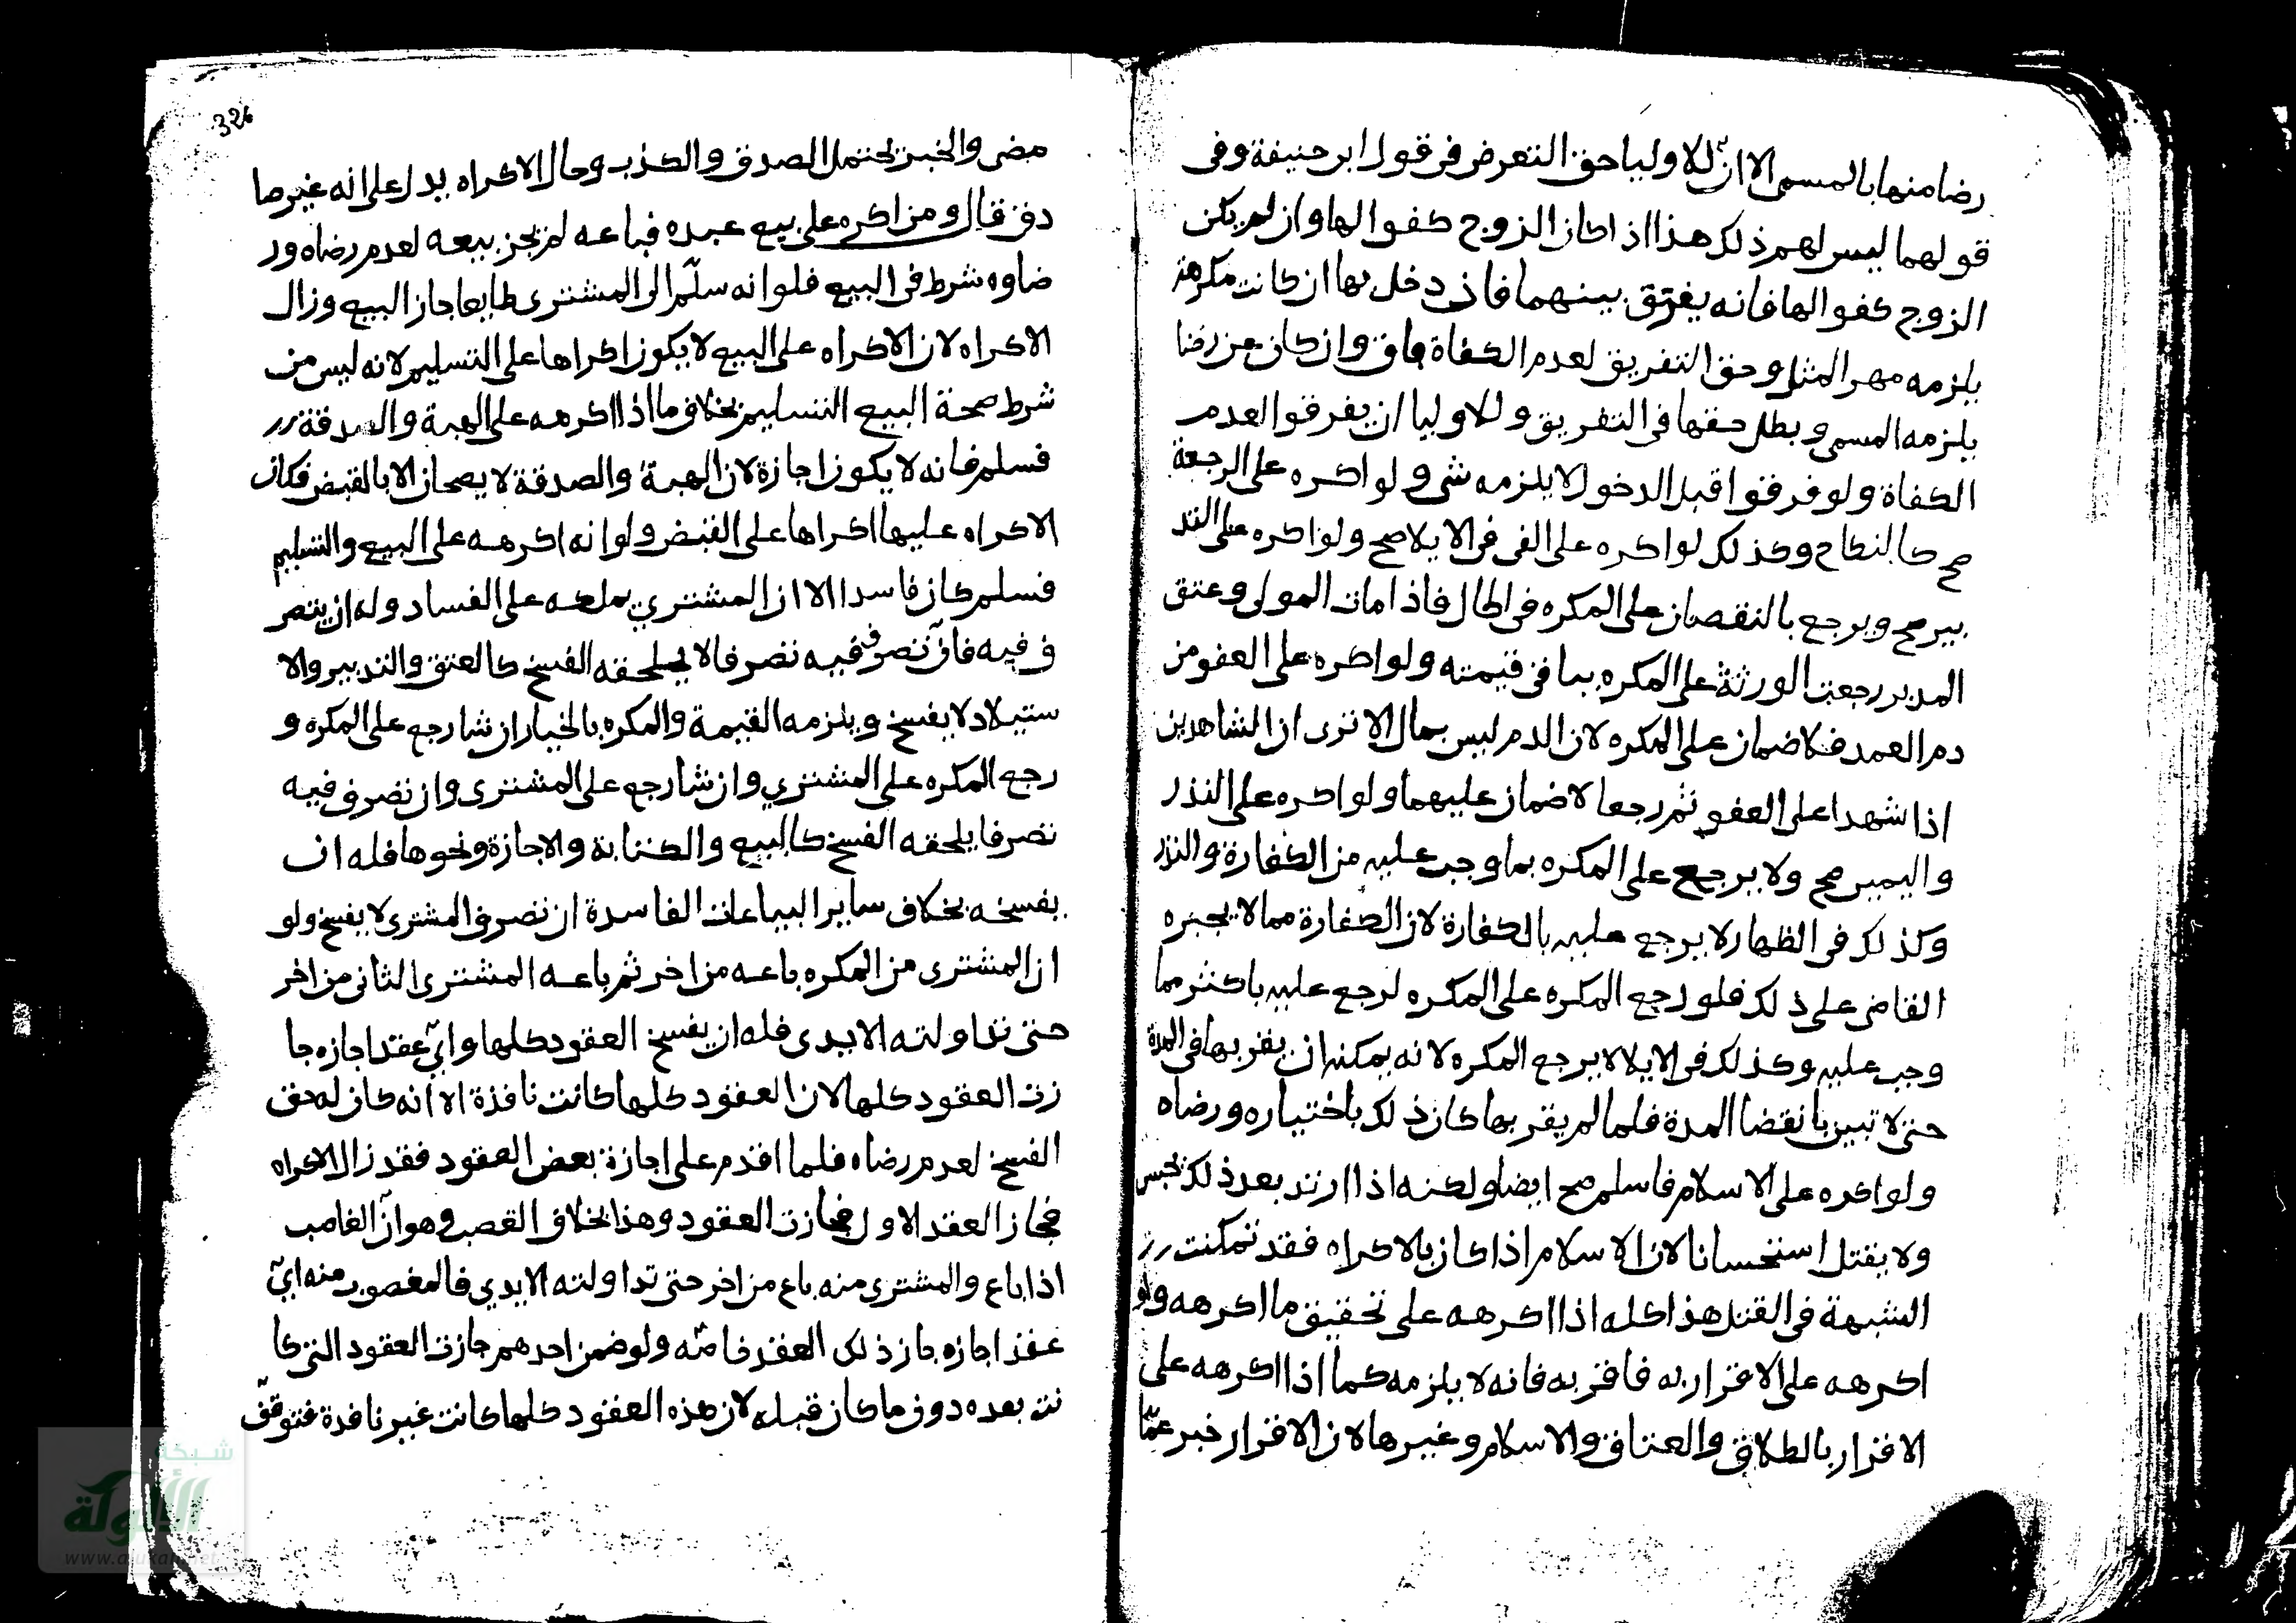 رضا منها بالمسمى الا ان للاوليا حق التعرض في قول ابي حنيفة وفي
قولهما ليس لهم ذلك هذا اذا كان الزوج كفوا لها وان لم يكن
الزوج كفوا لها فانه يفرق بينهما فان دخل بها ان كانت مكرهة
يلزمه مهر المثل وحق التفريق لعدم الكفاة باق وان كان عن رضا
يلزمه المسمى وبطل حقها في التفريق وللاوليا ان يفرقوا لعدم
الكفاة ولو فرقوا قبل الدخول لا يلزمه شي ولو اكره على الرجعة
صح كالنكاح وكذلك لو اكره على الفي في الايلا صح ولو اكره على التد
بير صح ويرجع بالنقصان على المكره في الحال فاذا مات المولى وعتق
المدبر رجعت الورثة على المكره بباقي قيمته ولو اكره على العفو من
دم العمد فلا ضمان على المكره لان الدم ليس بمال الا ترى ان الشاهدين
اذا شهدا على العفو ثم رجعا لا ضمان عليهما ولو اكره على النذر
واليمين صح ولا يرجع على المكره بما وجب عليه من الكفارة والنذر
وكذلك في الظهار لا يرجع عليه بالكفارة لان الكفارة مما لا يجبره
القاضي على ذلك فلو رجع المكره على المكره لرجع عليه باكثر مما
وجب عليه وكذلك في الايلا لا يرجع المكره لانه يمكنه ان يقربها في المدة
حتى لا تبين بانقضا المدة فلما لم يقربها كان ذلك باختياره ورضاه
ولو اكره على الاسلام فاسلم صح ايضا ولكنه اذا ارتد بعد ذلك يحبس
ولا يقتل استحسانا لان الاسلام اذا كان بالاكراه فقد تمكنت
الشبهة في القتل هذا كله اذا اكرهه على تحقيق ما اكرهه ولو
اكرهه على الاقرار به فاقر به فانه لا يلزمه كما اذا اكرهه على
الاقرار بالطلاق والعتاق والاسلام وغيرها لان الاقرار خبر عما
326
مضى والخبر يحتمل الصدق والكذب وحال الاكراه يدل على انه غير صا
دق قال ومن اكره على بيع عبده فباعه لم يجز بيعه لعدم رضاه ور
ضاوه شرط في البيع فلو انه سلم الى المشتري طايعا جاز البيع وزال
الاكراه لان الاكراه على البيع لا يكون اكراها على التسليم لانه ليس من
شرط صحة البيع التسليم بخلاف ما اذا اكرهه على الهبة والصدقة
فسلم فانه لا يكون اجازة لان الهبة والصدقة لا يصحان الا بالقبض فكان
الاكراه عليها اكراها على القبض ولو انه اكرهه على البيع والتسليم
فسلم كان فاسدا الا ان المشتري يملكه على الفساد وله ان يتصر
ف فيه فان تصرف فيه تصرفا لا يلحقه الفسخ كالعتق والتدبير والا
ستيلاد لا يفسخ ويلزمه القيمة والمكره بالخيار ان شا رجع على المكره و
رجع المكره على المشتري وان شا رجع على المشتري وان تصرف فيه
تصرفا يلحقه الفسخ كالبيع والكتابة والاجازة ونحوها فله ان
يفسخه بخلاف ساير البياعات الفاسدة ان تصرف المشتري لا يفسخ ولو
ان المشتري من المكره باعه من اخر ثم باعه المشتري الثاني من اخر
حتى تداولته الايدي فله ان يفسخ العقود كلها واي عقد اجازه جا
زت العقود كلها لان العقود كلها كانت نافذة الا انه كان له حق
الفسخ لعدم رضاه فلما اقدم على اجازة بعض العقود فقد زال الاكراه
فجاز العقد الاول فجازت العقود وهذا بخلاف الغصب وهو ان الغاصب
اذا باع والمشتري منه باع من اخر حتى تداولته الايدي فالمغصوب منه اي
عقد اجازه جاز ذلك العقد خاصة ولو ضمن احدهم جازت العقود التي كا
نت بعده دون ما كان قبله لان هذه العقود كلها كانت غير نافدة فتوقف
شبكة
الألوكة
www.alukah.net